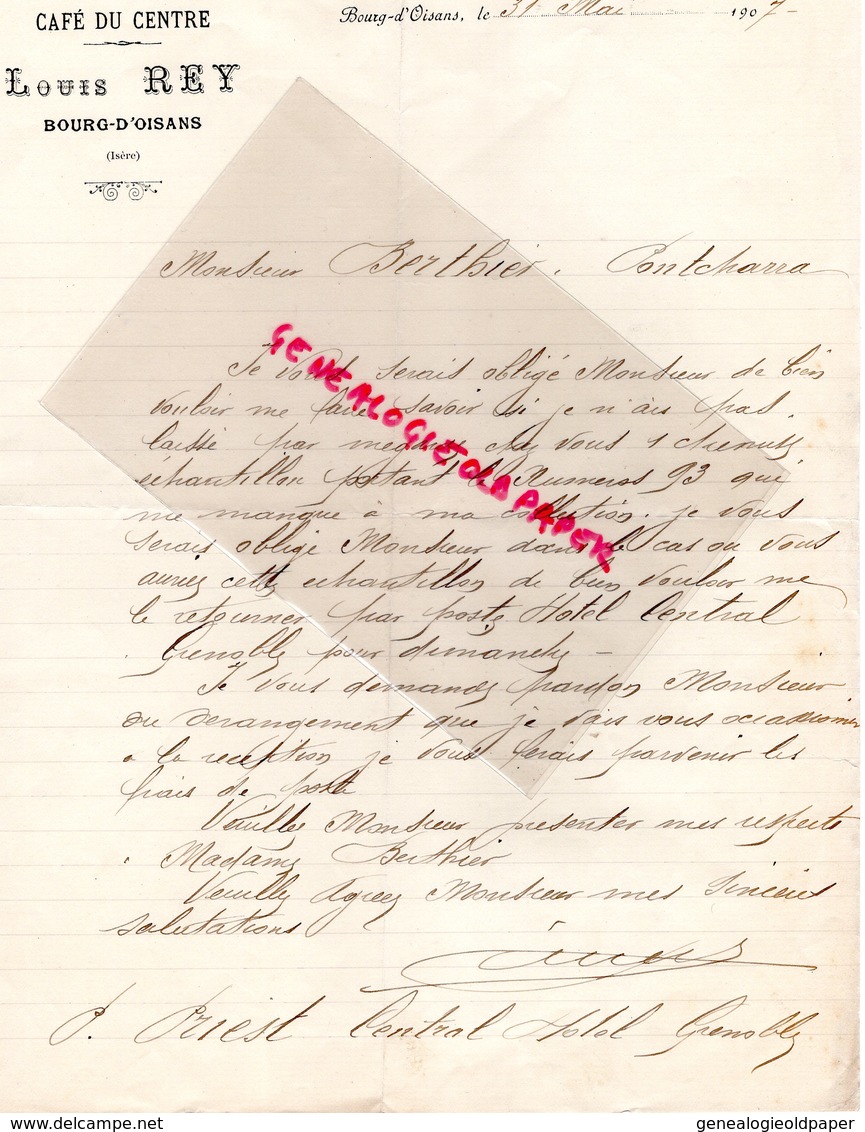 CAFÉ DU CENTRE
Louis REY
BOURG-D'OISANS
(Isère)
Bourg-d'Oisans, le 31 Mai 1907-
Monsieur Berthier. Pontcharra
Je vous serais obligé Monsieur de bien
vouloir me faire savoir si je n'ais pas
laissé par chez vous 1
échantillon portant le Numeros 93 qui
me manque à ma collection. je vous
serais obligé Monsieur dans le cas ou vous
auriez cette echantillon de bien vouloir me
le retourner par poste Hotel Central
Grenoble pour dimanche -
Je vous demande pardon Monsieur
du derangement que je vais vous occasionner
a la reception je vous ferais parvenir les
frais de poste
Veuillez Monsieur presenter mes respects
a Madame Berthier
Veuillez Agreez Monsieur mes Sinceres
salutations
P. Priest Central Hotel Grenoble
GENEALOGIEOLDPAPER
delcampe.net
genealogieoldpaper